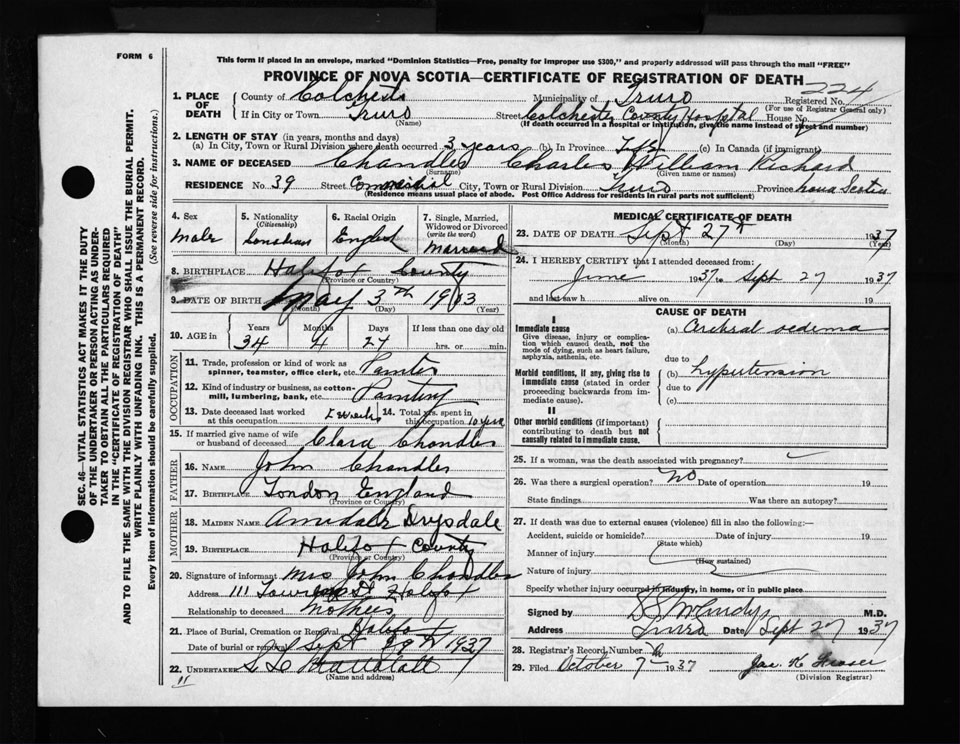 FORM 6
This form if placed in an envelope, marked "Dominion Statistics—Free, penalty for improper use $300," and properly addressed will pass through the mail "FREE"
PROVINCE OF NOVA SCOTIA—CERTIFICATE OF REGISTRATION OF DEATH
224
1. PLACE OF DEATH
County of Colchester Municipality of Truro Registered No.
(For use of Registrar General only)
If in City or Town Truro Street Colchester County Hospital House No.
(Name) (If death occurred in a hospital or institution, give the name instead of street and number)
2. LENGTH OF STAY (in years, months and days)
(a) In City, Town or Rural Division where death occurred 3 years (b) In Province Life (c) In Canada (if immigrant)
3. NAME OF DECEASED Chandler Charles William Richard
(Surname) (Given name or names)
RESIDENCE No. 39 Street Commercial City, Town or Rural Division Truro Province Nova Scotia
(Residence means usual place of abode. Post Office Address for residents in rural parts not sufficient)
4. Sex Male
5. Nationality (Citizenship) Canadian
6. Racial Origin English
7. Single, Married, Widowed or Divorced (write the word) Married
8. BIRTHPLACE Halifax County
(Province or Country)
9. DATE OF BIRTH May 3rd 1903
(Month) (Day) (Year)
10. AGE in Years 34 Months 4 Days 24 If less than one day old hrs. or min.
OCCUPATION
11. Trade, profession or kind of work as spinner, teamster, office clerk, etc. Painter
12. Kind of industry or business, as cotton-mill, lumbering, bank, etc. Painting
13. Date deceased last worked at this occupation 2 weeks 14. Total yrs. spent in this occupation 10 years
15. If married give name of wife or husband of deceased Clara Chandler
FATHER
16. NAME John Chandler
17. BIRTHPLACE London England
(Province or Country)
MOTHER
18. MAIDEN NAME Drysdale
19. BIRTHPLACE Halifax County
(Province or Country)
20. Signature of informant Mrs John Chandler
Address 111 St Halifax
Relationship to deceased Mother
21. Place of Burial, Cremation or Removal Halifax
Date of burial or removal Sept 29th 1937
22. UNDERTAKER
(Name and address)
MEDICAL CERTIFICATE OF DEATH
23. DATE OF DEATH Sept 27th 1937
(Month) (Day) (Year)
24. I HEREBY CERTIFY that I attended deceased from:
June 1937 to Sept 27 1937
and last saw h alive on 19
CAUSE OF DEATH
I
Immediate cause
Give disease, injury or complication which caused death, not the mode of dying, such as heart failure, asphyxia, asthenia, etc.
(a) Cerebral oedema
due to
Morbid conditions, if any, giving rise to immediate cause (stated in order proceeding backwards from immediate cause).
(b) hypertension
due to
(c)
II
Other morbid conditions (if important) contributing to death but not causally related to immediate cause.
25. If a woman, was the death associated with pregnancy?
26. Was there a surgical operation? No Date of operation 19
State findings Was there an autopsy?
27. If death was due to external causes (violence) fill in also the following:—
Accident, suicide or homicide? Date of injury 19
(State which)
Manner of injury
(How sustained)
Nature of injury
Specify whether injury occurred in industry, in home, or in public place
Signed by M.D.
Address Truro Date Sept 27 1937
28. Registrar's Record Number
29. Filed October 7 1937 Jas K Fraser
(Division Registrar)
SEC. 46—VITAL STATISTICS ACT MAKES IT THE DUTY
OF THE UNDERTAKER OR PERSON ACTING AS UNDER-
TAKER TO OBTAIN ALL THE PARTICULARS REQUIRED
IN THE "CERTIFICATE OF REGISTRATION OF DEATH"
AND TO FILE THE SAME WITH THE DIVISION REGISTRAR WHO SHALL ISSUE THE BURIAL PERMIT.
WRITE PLAINLY WITH UNFADING INK. THIS IS A PERMANENT RECORD.
Every item of information should be carefully supplied. (See reverse side for instructions.)